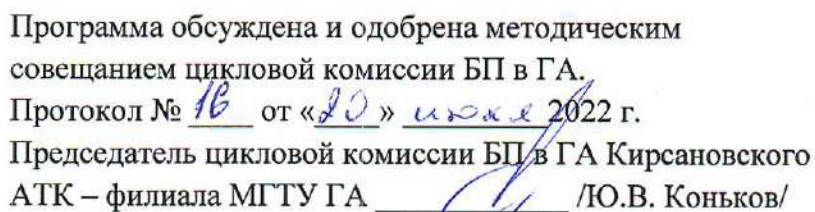 Программа обсуждена и одобрена методическим
совещанием цикловой комиссии БП в ГА.
Протокол № 16 от «20» июня 2022 г.
Председатель цикловой комиссии БП в ГА Кирсановского
АТК – филиала МГТУ ГА /Ю.В. Коньков/